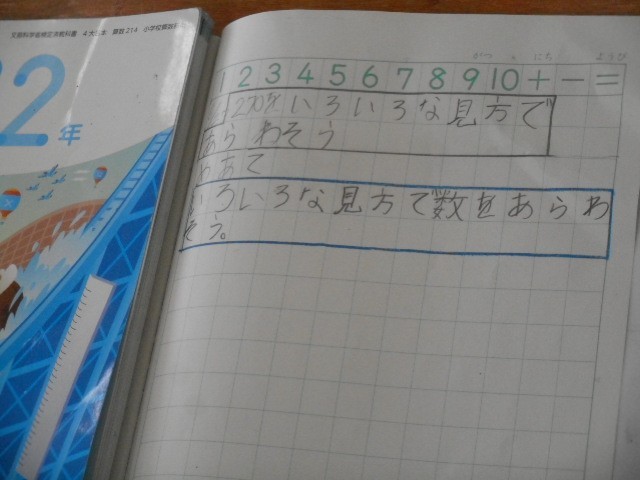 文部科学省検定済教科書 4 大日本 算数214 小学校算数科
2年
がつ にち ようび
1 2 3 4 5 6 7 8 9 10 + − =
270をいろいろな見方で
あらわそう
めあて
いろいろな見方で数をあらわ
そう。